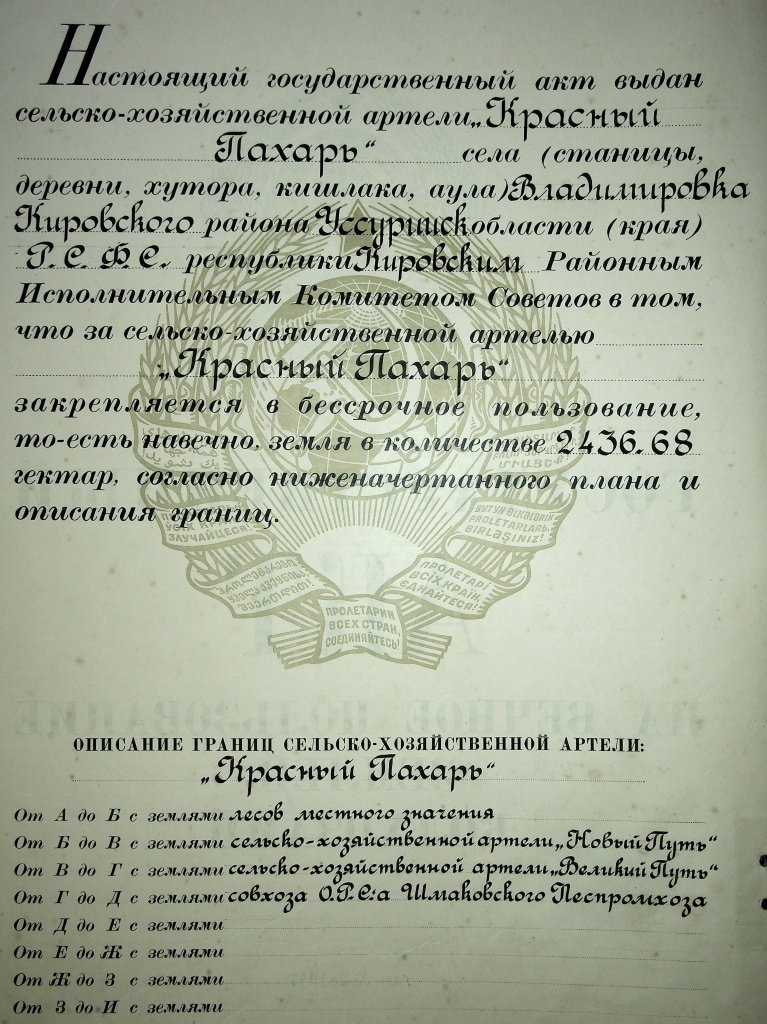 Настоящий государственный акт выдан
сельско-хозяйственной артели „Красный
Пахарь“ села (станицы,
деревни, хутора, кишлака, аула) Владимировка
Кировского района Уссурийск области (края)
Р.С.Ф.С. республики Кировским Районным
Исполнительным Комитетом Советов в том,
что за сельско-хозяйственной артелью
„Красный Пахарь“
закрепляется в бессрочное пользование,
то-есть навечно, земля в количестве 2436.68
гектар, согласно ниженачертанного плана и
описания границ.
BÜTÜN ØLKƏLƏRİN
PROLETARLARЬ,
BİRLƏŞİNİZ!
ПРОЛЕТАРІ
ВСІХ КРАЇН,
ЄДНАЙТЕСЯ!
ПРОЛЕТАРИИ
ВСЕХ СТРАН,
СОЕДИНЯЙТЕСЬ!
НА ВЕЧНОЕ ПОЛЬЗОВАНИЕ
ОПИСАНИЕ ГРАНИЦ СЕЛЬСКО-ХОЗЯЙСТВЕННОЙ АРТЕЛИ:
„Красный Пахарь“
От А до Б с землями лесов местного значения
От Б до В с землями сельско-хозяйственной артели „Новый Путь“
От В до Г с землями сельско-хозяйственной артели „Великий Путь“
От Г до Д с землями совхоза О.Р.С:а Шмаковского Леспромхоза
От Д до Е с землями
От Е до Ж с землями
От Ж до З с землями
От З до И с землями